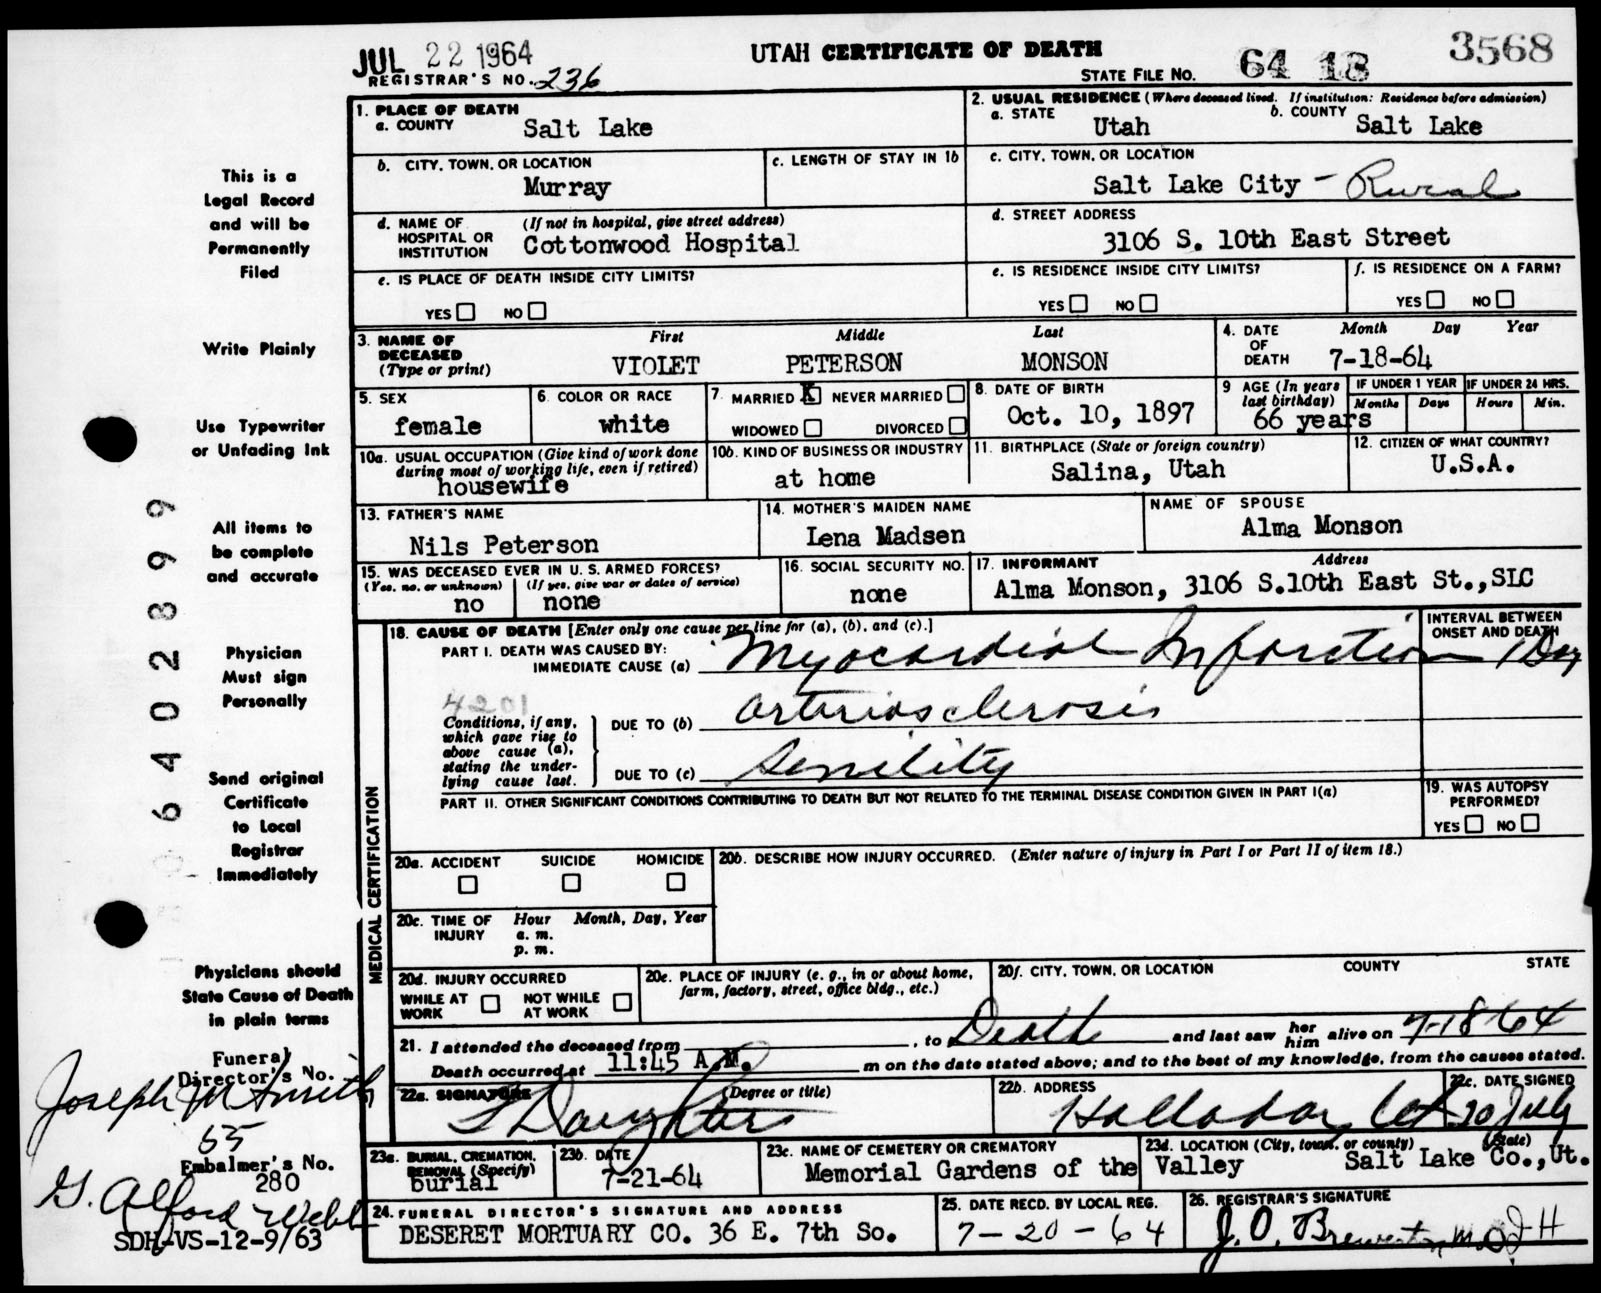 JUL 22 1964
UTAH CERTIFICATE OF DEATH
3568
REGISTRAR'S NO. 236
STATE FILE NO. 64 18
1. PLACE OF DEATH
a. COUNTY Salt Lake
2. USUAL RESIDENCE (Where deceased lived. If institution: Residence before admission)
a. STATE Utah b. COUNTY Salt Lake
b. CITY, TOWN, OR LOCATION Murray
c. LENGTH OF STAY IN 1b
c. CITY, TOWN, OR LOCATION
Salt Lake City - Rural
d. NAME OF HOSPITAL OR INSTITUTION (If not in hospital, give street address)
Cottonwood Hospital
d. STREET ADDRESS
3106 S. 10th East Street
e. IS PLACE OF DEATH INSIDE CITY LIMITS?
YES NO
e. IS RESIDENCE INSIDE CITY LIMITS?
YES NO
f. IS RESIDENCE ON A FARM?
YES NO
3. NAME OF DECEASED (Type or print)
First Middle Last
VIOLET PETERSON MONSON
4. DATE OF DEATH Month Day Year
7-18-64
5. SEX
female
6. COLOR OR RACE
white
7. MARRIED X NEVER MARRIED
WIDOWED DIVORCED
8. DATE OF BIRTH
Oct. 10, 1897
9 AGE (In years last birthday)
66 years
IF UNDER 1 YEAR IF UNDER 24 HRS.
Months Days Hours Min.
10a. USUAL OCCUPATION (Give kind of work done during most of working life, even if retired)
housewife
10b. KIND OF BUSINESS OR INDUSTRY
at home
11. BIRTHPLACE (State or foreign country)
Salina, Utah
12. CITIZEN OF WHAT COUNTRY?
U.S.A.
13. FATHER'S NAME
Nils Peterson
14. MOTHER'S MAIDEN NAME
Lena Madsen
NAME OF SPOUSE
Alma Monson
15. WAS DECEASED EVER IN U. S. ARMED FORCES?
(Yes, no, or unknown) (If yes, give war or dates of service)
no none
16. SOCIAL SECURITY NO.
none
17. INFORMANT Address
Alma Monson, 3106 S.10th East St.,SLC
18. CAUSE OF DEATH [Enter only one cause per line for (a), (b), and (c).]
INTERVAL BETWEEN ONSET AND DEATH
PART I. DEATH WAS CAUSED BY:
IMMEDIATE CAUSE (a) Myocardial Infarction 1 Day
4201
Conditions, if any, which gave rise to above cause (a), stating the underlying cause last.
DUE TO (b) Arteriosclerosis
DUE TO (c) Senility
PART II. OTHER SIGNIFICANT CONDITIONS CONTRIBUTING TO DEATH BUT NOT RELATED TO THE TERMINAL DISEASE CONDITION GIVEN IN PART I(a)
19. WAS AUTOPSY PERFORMED?
YES NO
MEDICAL CERTIFICATION
20a. ACCIDENT SUICIDE HOMICIDE
20b. DESCRIBE HOW INJURY OCCURRED. (Enter nature of injury in Part I or Part II of item 18.)
20c. TIME OF INJURY Hour Month, Day, Year
a. m.
p. m.
20d. INJURY OCCURRED
WHILE AT WORK NOT WHILE AT WORK
20e. PLACE OF INJURY (e. g., in or about home, farm, factory, street, office bldg., etc.)
20f. CITY, TOWN, OR LOCATION COUNTY STATE
21. I attended the deceased from , to Death and last saw her him alive on 7-18-64
Death occurred at 11:45 A.M. m on the date stated above; and to the best of my knowledge, from the causes stated.
22a. SIGNATURE (Degree or title)
22b. ADDRESS
Holladay Ut
22c. DATE SIGNED
20 July
23a. BURIAL, CREMATION, REMOVAL (Specify)
burial
23b. DATE
7-21-64
23c. NAME OF CEMETERY OR CREMATORY
Memorial Gardens of the Valley
23d. LOCATION (City, town, or county) (State)
Salt Lake Co.,Ut.
24. FUNERAL DIRECTOR'S SIGNATURE AND ADDRESS
DESERET MORTUARY CO. 36 E. 7th So.
25. DATE RECD. BY LOCAL REG.
7-20-64
26. REGISTRAR'S SIGNATURE
J. O. Brewerton M.D. JH
This is a
Legal Record
and will be
Permanently
Filed
Write Plainly
Use Typewriter
or Unfading Ink
All items to
be complete
and accurate
Physician
Must sign
Personally
Send original
Certificate
to Local
Registrar
Immediately
Physicians should
State Cause of Death
in plain terms
Funeral
Director's No.
Joseph M Smith
65
Embalmer's No.
280
G. Alford Webb
SDH-VS-12-9/63
6402899